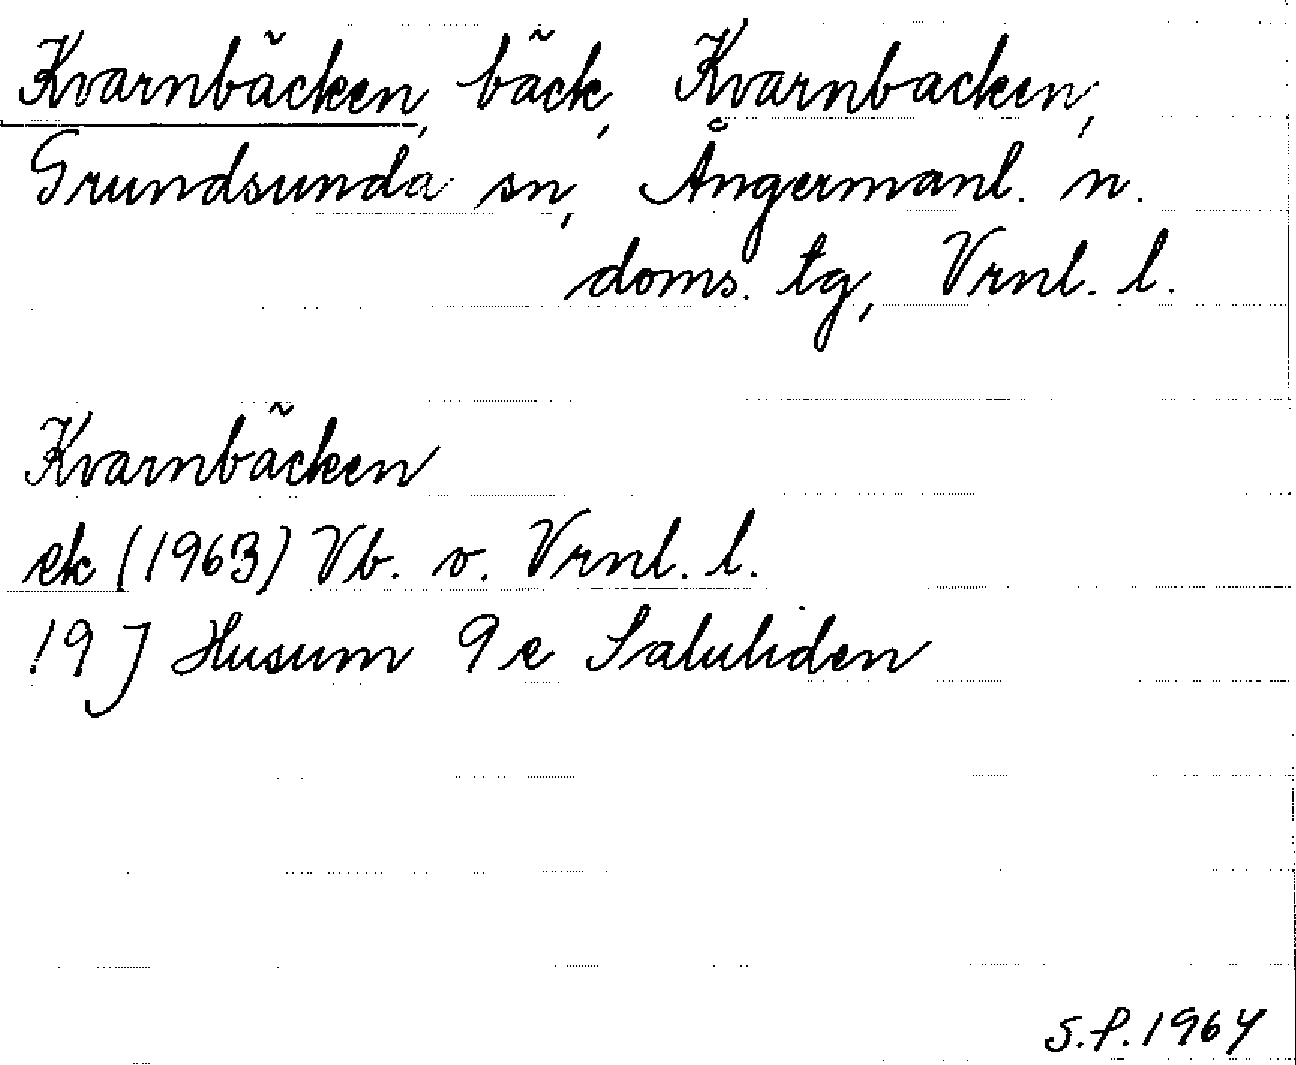 Kvarnbäcken, bäck, Kvarnbacken,
Grundsunda sn, Ångermanl. n.
doms. tg, Vrnl. l.
Kvarnbäcken
ek (1963) Vb. o. Vrnl. l.
19J Husum 9e Saluliden
S.P. 1964